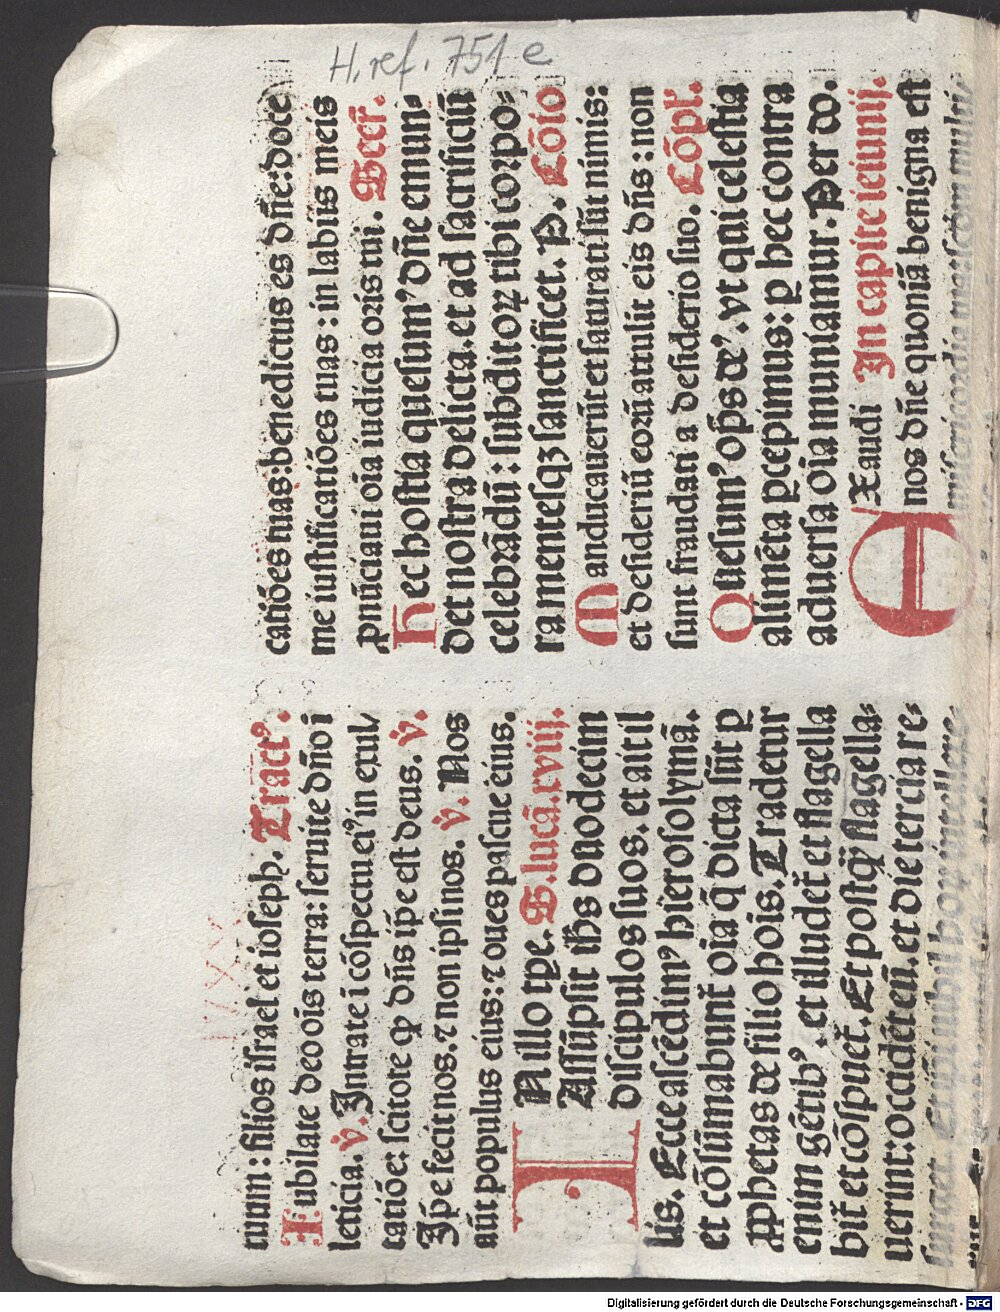 H. ref. 751 e
tuum: filios israel et ioseph. Tract᾽.
Iubilate deo oīs terra: seruite dño i
leticia. v̄. Intrate ī cōspectu ei᷒ in exul
tatiōe: scitote ꝙ dñs ip̄e est deus. v̄.
Ip̄e fecit nos. ⁊ non ipsi nos. v̄. Nos
aūt populus eius: ⁊ oues pascue eius.
IN illo tp̄e. S. lucā. xviij.
Assūpsit ih̄s duodecim
discipulos suos. et ait il
lis. Ecce ascēdim᷒ hierosolymā.
et cōsūmabunt̄ oīa q̄ dicta sūt ꝑ
ꝓphetas de filio hoīs. Tradetur
enim gētib᷒. et illudet̄ et flagella
bit̄ et cōspuet̄. Et postq̄ꝫ flagella-
uerint: occidēt eū. et die tercia re-
surget. Et ip̄i nihil hoꝝ intellexe-
catiōes tuas: benedictus es dñe: doce
me iustificatiōes tuas: in labijs meis
ꝓnūciaui oīa iudicia oris tui. Secr̄.
Hec hostia quesum᷒ dñe emun-
det nostra delicta. et ad sacrificiū
celebrādū: subditoꝝ tibi corpo-
ra mentesqꝫ sanctificet. P. Cōio
Manducauerūt et saturati sūt nimis:
et desideriū eorū attulit eis dñs: non
sunt fraudati a desiderio suo. Cōpl̄.
Quesum᷒ op̄s de᷒. vt qui celestia
alimēta ꝑcepimus: ꝑ hec contra
aduersa oīa muniamur. Per do.
EXaudi In capite ieiunij.
nos dñe quoniā benigna est
Digitalisierung gefördert durch die Deutsche Forschungsgemeinschaft - DFG